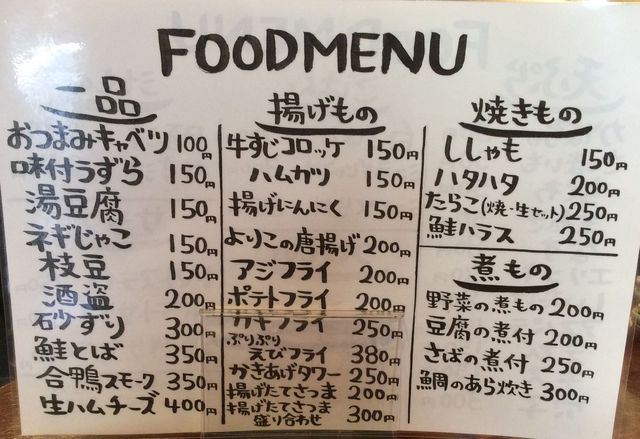 FOOD MENU
一品
おつまみキャベツ 100円
味付うずら 150円
湯豆腐 150円
ネギじゃこ 150円
枝豆 150円
酒盗 200円
砂ずり 300円
鮭とば 350円
合鴨スモーク 350円
生ハムチーズ 400円
揚げもの
牛すじコロッケ 150円
ハムカツ 150円
揚げにんにく 150円
よりこの唐揚げ 200円
アジフライ 200円
ポテトフライ 200円
カキフライ 250円
ぷりぷり
えびフライ 380円
かきあげタワー 250円
揚げたてさつま 200円
揚げたてさつま
盛り合わせ 300円
焼きもの
ししゃも 150円
ハタハタ 200円
たらこ(焼・生セット) 250円
鮭ハラス 250円
煮もの
野菜の煮もの 200円
豆腐の煮付 200円
さばの煮付 250円
鯛のあら炊き 300円